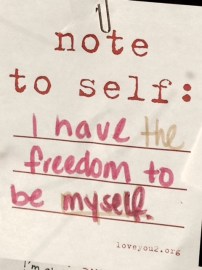 note
to self:
I have the
freedom to
be myself.
loveyou2.org
I'm